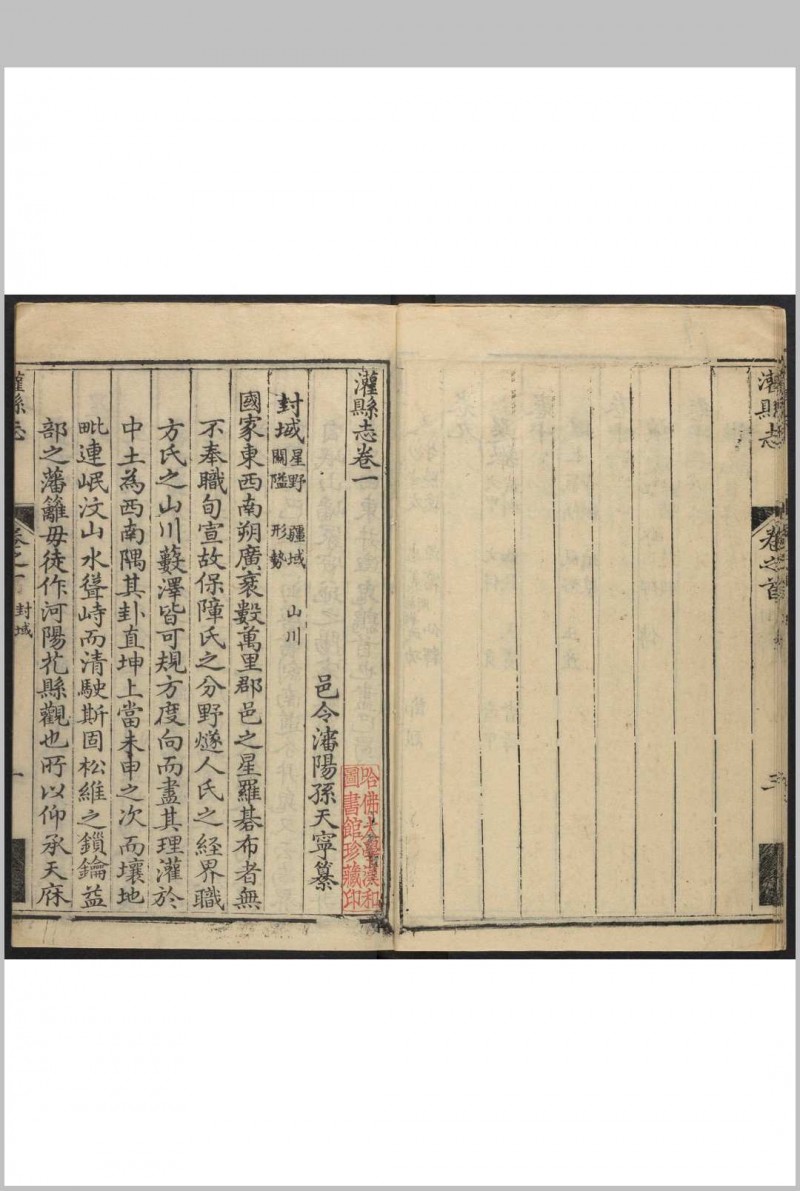 灌縣志
卷之首
三
灌縣志卷一
邑令瀋陽孫天寧纂
哈佛大學漢和
圖書館珍藏印
封域
星野 疆域 山川
關隘 形勢
國家東西南朔廣袤數萬里郡邑之星羅碁布者無
不奉職旬宣故保障氏之分野燧人氏之經界職
方氏之山川藪澤皆可規方度向而盡其理灌於
中土為西南隅其卦直坤上當未申之次而壤地
毗連岷汶山水聳峙而清駛斯固松維之鎖鑰益
部之藩籬毋徒作河陽花縣觀也所以仰承天庥
灌縣志
卷之一
封域
一